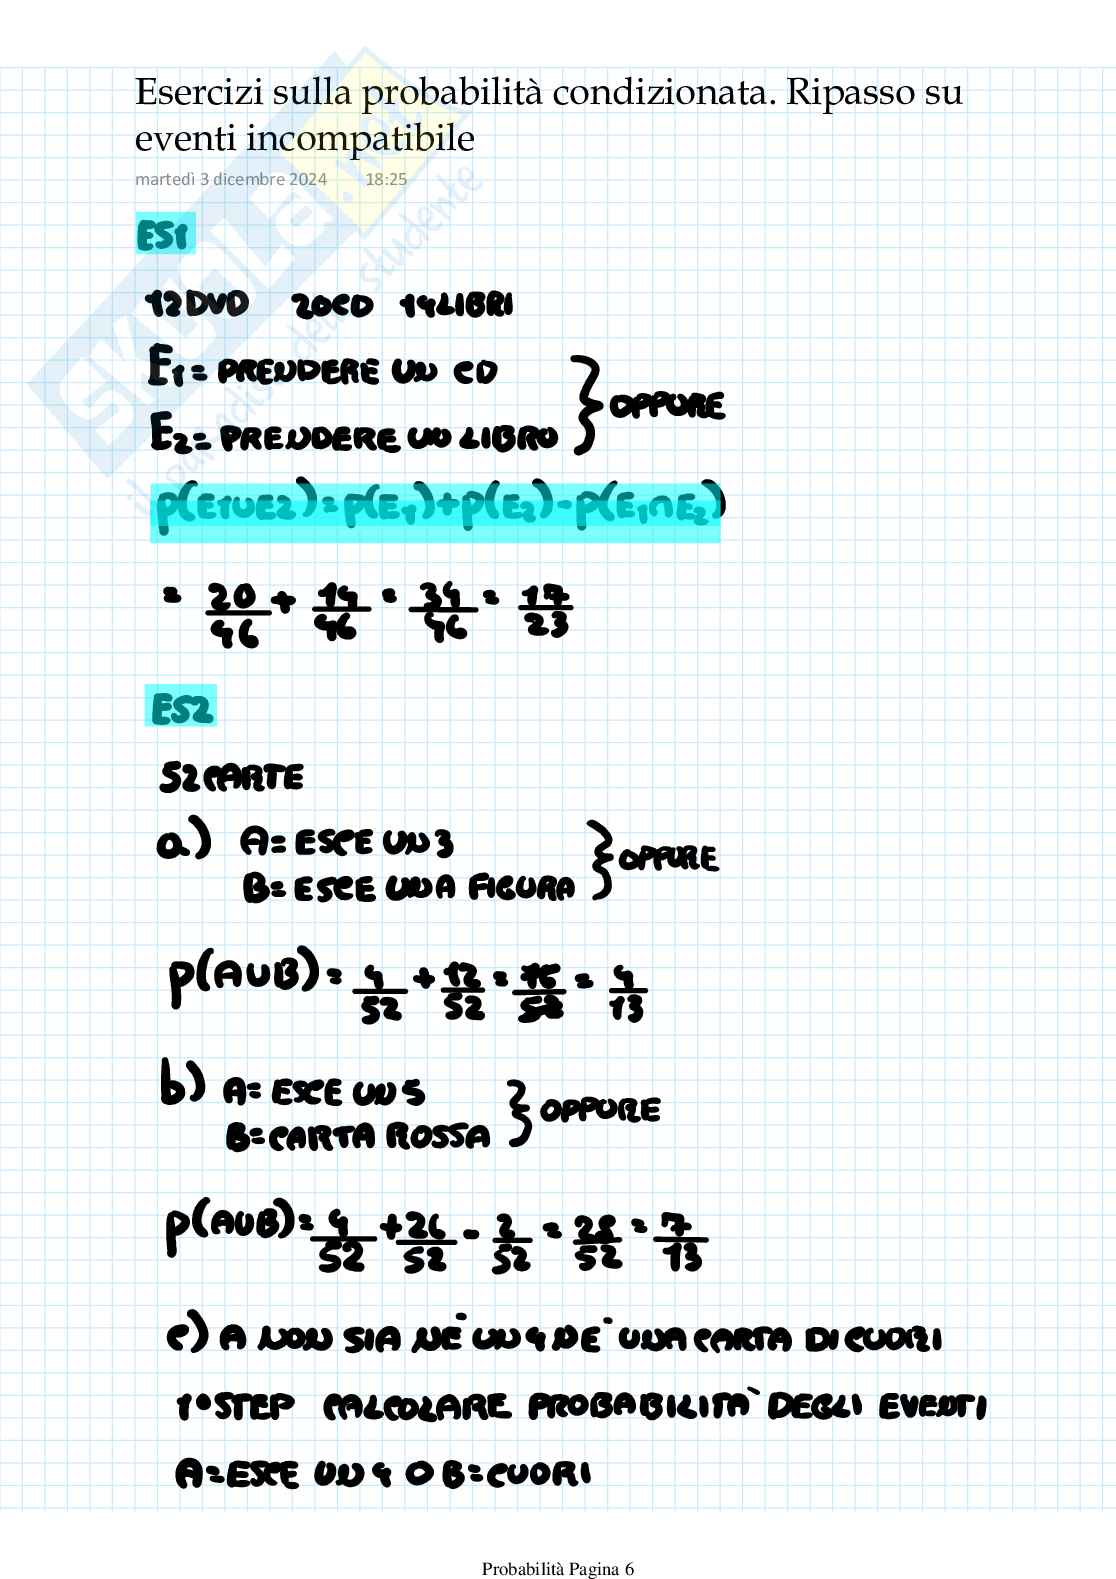 Esercizi sulla probabilità condizionata. Ripasso su
eventi incompatibile
martedì 3 dicembre 2024 18:25
SKUOLA.net
il paradiso dello studente
ES1
12 DVD 20 CD 14 LIBRI
E1 = PRENDERE UN CD
E2 = PRENDERE UN LIBRO } OPPURE
P(E1∪E2) = P(E1) + P(E2) - P(E1∩E2)
= 20/46 + 14/46 = 34/46 = 17/23
ES2
52 CARTE
a) A = ESCE UN 3
B = ESCE UNA FIGURA } OPPURE
P(A∪B) = 4/52 + 12/52 = 16/52 = 4/13
b) A = ESCE UN 5
B = CARTA ROSSA } OPPURE
P(A∪B) = 4/52 + 26/52 - 2/52 = 28/52 = 7/13
c) A NON SIA NÈ UN 4 NÈ UNA CARTA DI CUORI
1° STEP CALCOLARE PROBABILITÀ DEGLI EVENTI
A = ESCE UN 4 O B = CUORI
Probabilità Pagina 6